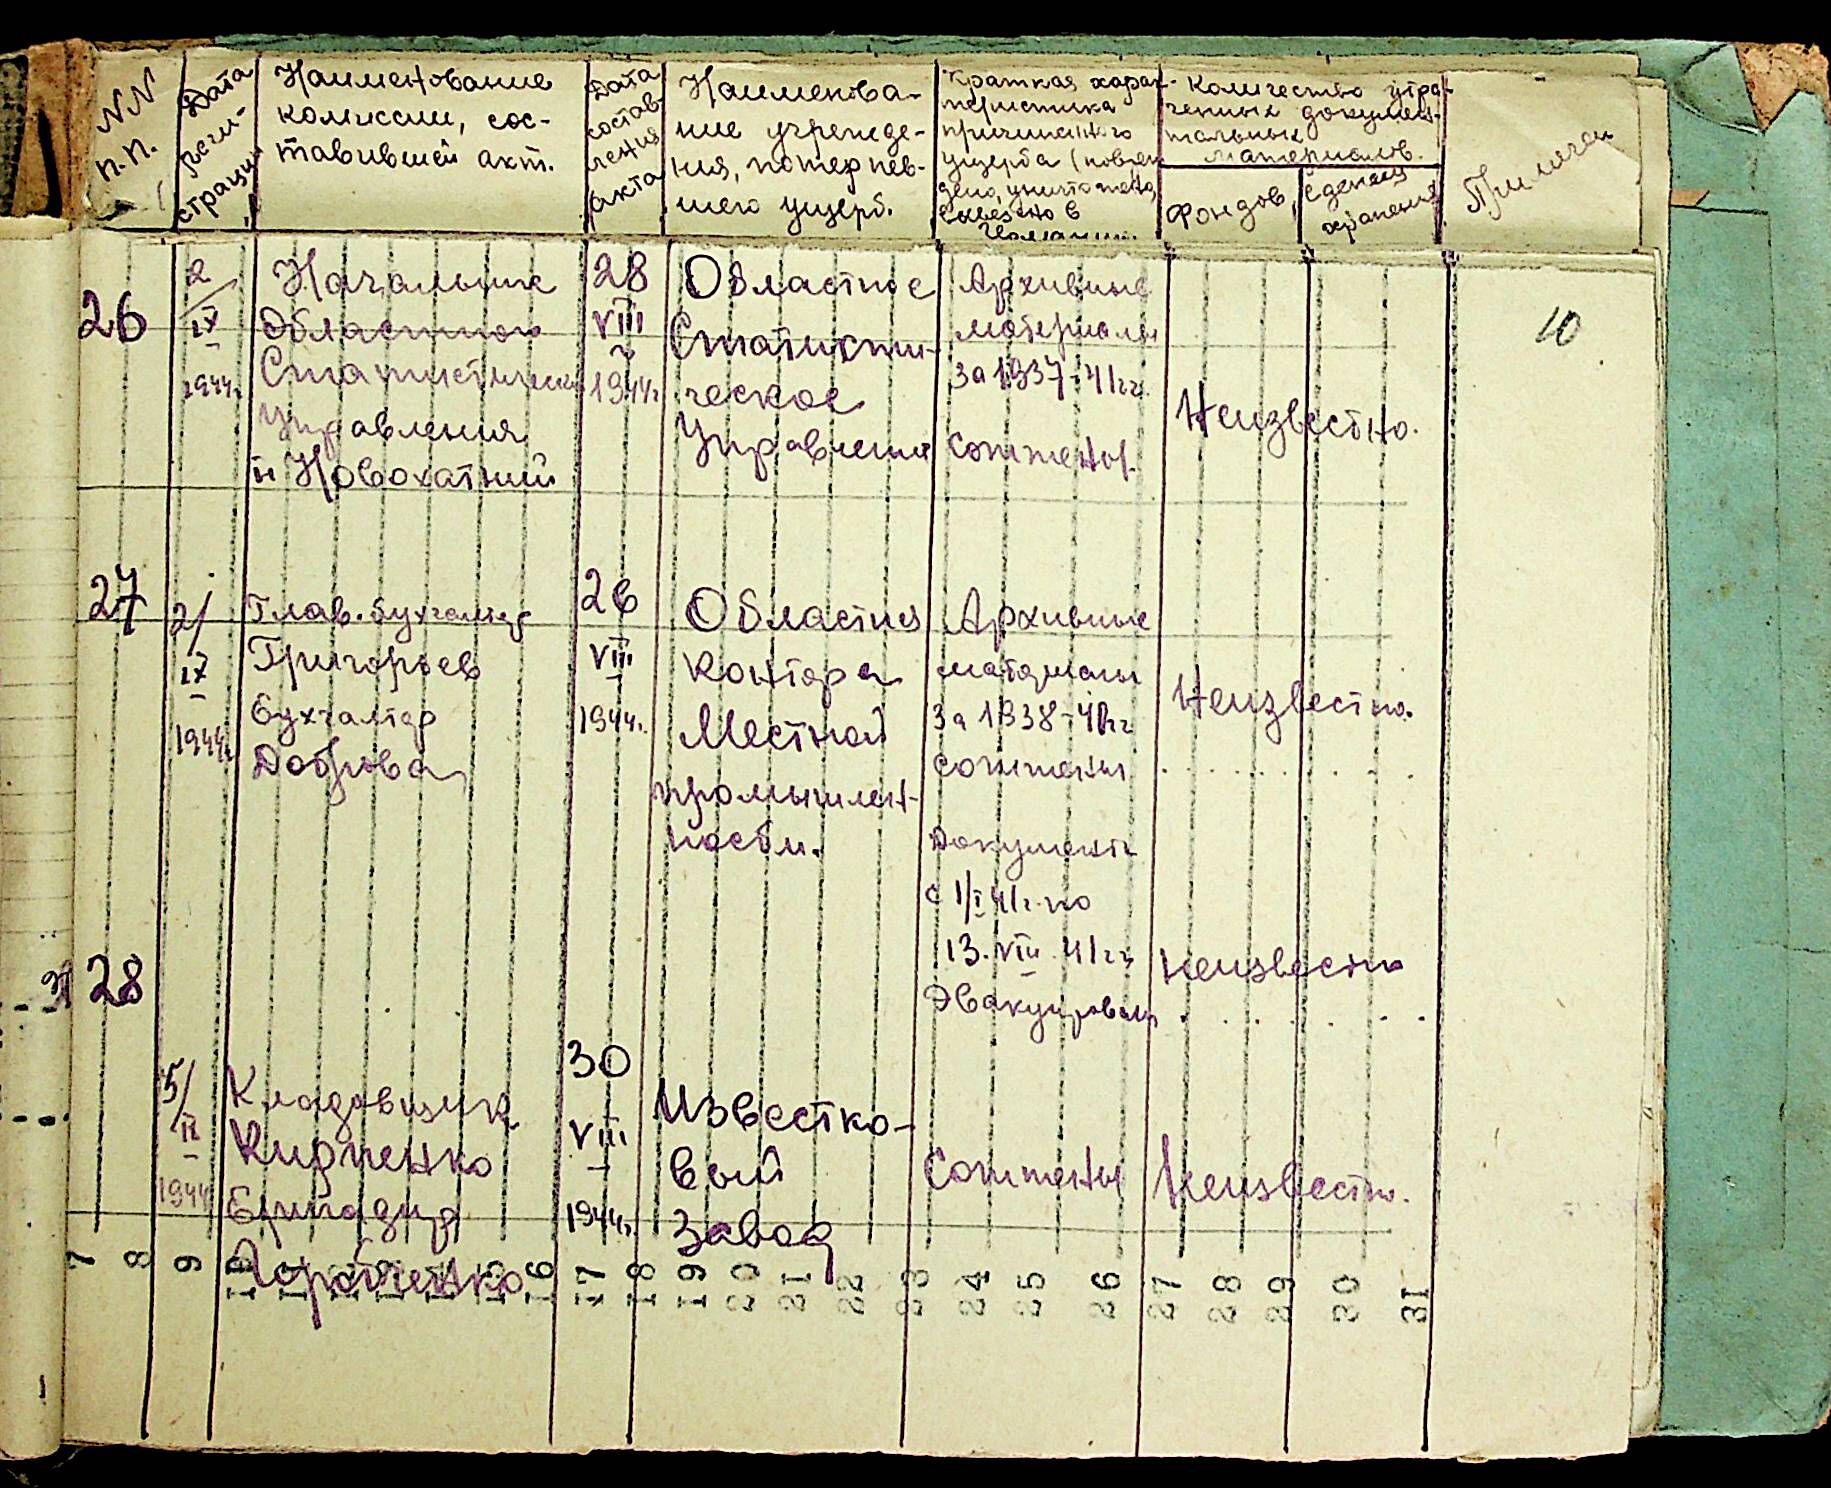 NN п.п.
Дата реги-
страции
Наименование
комиссии, сос-
тавившей акт.
Дата
состав-
ления
акта
Наименова-
ние учрежде-
ния, потерпев-
шего ущерб.
Краткая харак-
теристика
причиненного
ущерба (повреж-
дено, уничтожено,
вывезено в
Германию.
Количество утра-
ченных докумен-
тальных
материалов.
Фондов,
Единиц
хранения
Примечан
10
26
2/IX
1944г.
Начальник
Областного
Статистическ
Управления
Новохатний
28
VIII
1944г.
Областное
Статисти-
ческое
Управление
Архивные
материалы
за 1937-41гг.
сожжены.
Неизвестно.
27
2/
IX
1944г.
Глав. бухгалтер
Григорьев
бухгалтер
26
VIII
1944г.
Областная
контора
Местной
промышлен-
ности.
Архивные
материалы
за 1938-41гг
сожжены
Неизвестно.
Документы
с 1/I 41г. по
13.VIII.41гг
Эвакуирован
неизвестно
28
5/
IX
1944
Кладовщик
Бригадир
30
VIII
1944г.
Известко-
вый
завод
Сожжены
Неизвестно.
7 8 9 10 16 17 18 19 20 21 22 23 24 25 26 27 28 29 30 31